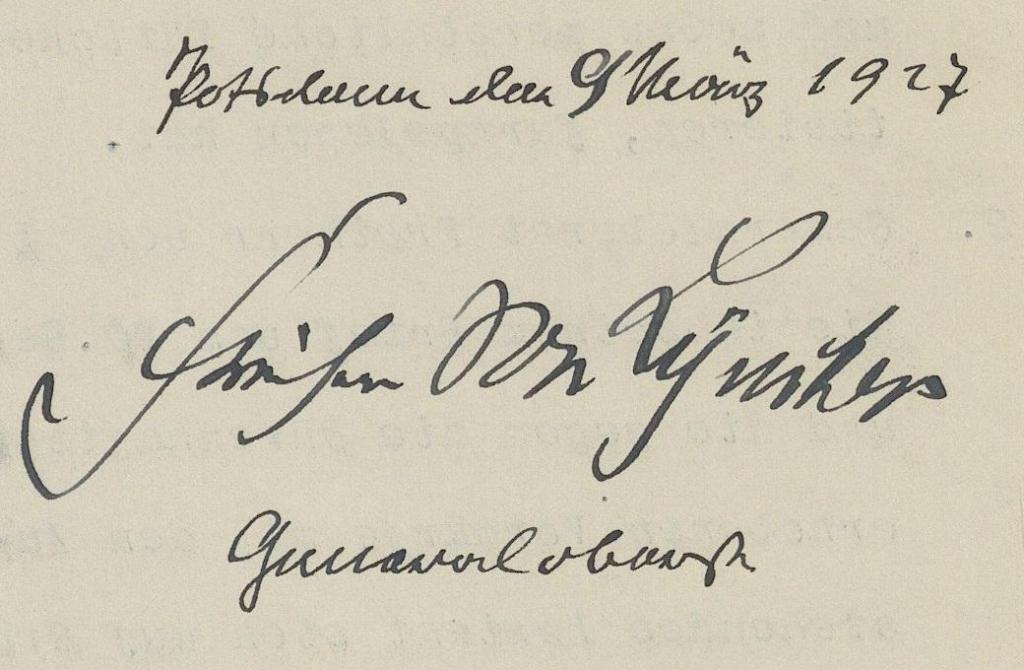 Potsdam den 9 März 1927
Freiherr von Lÿncker
Generaloberst